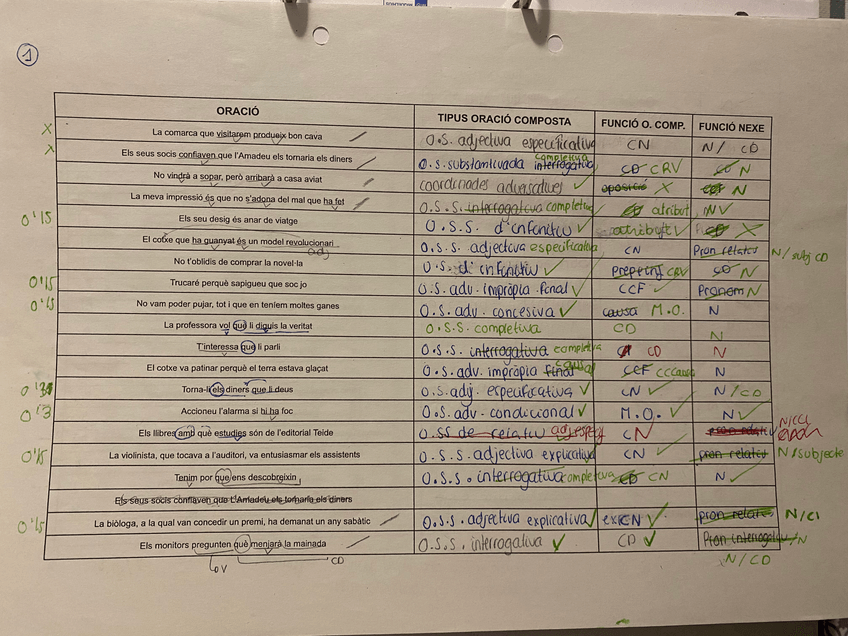 1
ORACIÓ TIPUS ORACIÓ COMPOSTA FUNCIÓ O. COMP. FUNCIÓ NEXE
X La comarca que visitarem produeix bon cava O.S. adjectiva especificativa CN N/ CD
X Els seus socis confiaven que l'Amadeu els tornaria els diners O.S. substantivada interrogativa completiva CD CRV CD N
No vindrà a sopar, però arribarà a casa aviat coordinades adversatives ✓ oposició X N
La meva impressió és que no s'adona del mal que ha fet O.S.S. interrogativa completiva atribut N ✓
0'15 Els seu desig és anar de viatge O.S.S. d'infinitiu ✓ atribut ✓ X
El cotxe que ha guanyat és un model revolucionari O.S. adjectiva especificativa CN Pron relatiu N/subj CD
adj
No t'oblidis de comprar la novel·la O.S. d'infinitiu ✓ CRV CD N
0'15 Trucaré perquè sapigueu que soc jo O.S. adv. impròpia final ✓ CCF ✓ Pronom N
0'15 No vam poder pujar, tot i que en teníem moltes ganes O.S. adv. concesiva ✓ causa M.O. N
La professora vol que li diguis la veritat O.S.S. completiva CD N
T'interessa que li parli O.S.S. interrogativa completiva CD N
El cotxe va patinar perquè el terra estava glaçat O.S. adv. impròpia final causal CCF CCCausa N
Torna-li els diners que li deus O.S. adj. especificativa ✓ CN ✓ N/CD
0'3 Accioneu l'alarma si hi ha foc O.S. adv. condicional ✓ M.O. ✓ N ✓
Els llibres amb què estudies són de l'editorial Teide O.SS de relatiu adj espec CN N/CCI
0'15 La violinista, que tocava a l'auditori, va entusiasmar els assistents O.S.S. adjectiva explicativa CN ✓ pron relatiu N/subjecte
Tenim por que ens descobreixin O.S.S. interrogativa completiva CD CN N ✓
Els seus socis confiaven que l'Amadeu els tornaria els diners
0'15 La biòloga, a la qual van concedir un premi, ha demanat un any sabàtic O.S.S. adjectiva explicativa ✓ CN ✓ pron relatiu N/CI
Els monitors pregunten què menjarà la mainada O.S.S. interrogativa ✓ CD ✓ Pron interrogatiu /N
N/CD
V CD